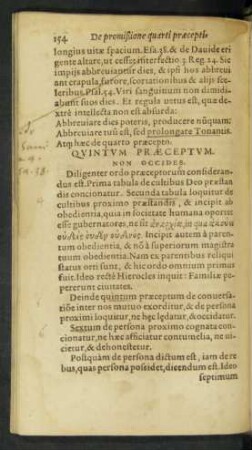 154 De promissione quarti præcepti.
longius uitæ spacium. Esa. 38. & de Dauide eri
gente altare, ut cesset interfectio 2. Reg. 24. Sic
impijs abbreuiantur dies, & ipsi hos abbreui
ant crapula, furore, scortationibus & alijs sce-
leribus. Psal. 54. Viri sanguinum non dimidi-
abunt suos dies. Et regula uetus est, quæ dex-
trè intellecta non est absurda:
Abbreuiare dies poteris, producere nũquam:
Abbreuiare tuũ est, sed prolongate Tonantis.
Atq; hæc de quarto præcepto.
QVINTVM PRÆCEPTVM.
NON OCCIDES.
Diligenter ordo præceptorum consideran-
dus est. Prima tabula de cultibus Deo præstan
dis concionatur. Secunda tabula loquitur de
cultibus proximo præstandis, & incipit ab
obedientia, quia in societate humana oportet
esse gubernatores, ne sit
Incipit autem à paren-
tum obedientia, & nõ à superiorum magistra
tuum obedientia. Nam ex parentibus reliqui
status orti sunt, & hic ordo omnium primus
fuit. Ideo rectè Hierocles inquit: Familiæ pe-
pererunt ciuitates.
Deinde quintum præceptum de conuersa-
tiõe inter nos mutuo exorditur, & de persona
proximi loquitur, ne hæc lędatur, & occidatur.
Sextum de persona proximo cognata con-
cionatur, ne hæc afficiatur contumelia, ne ui-
cietur, & dehonestetur.
Postquàm de persona dictum est, iam de re
bus, quas persona possidet, dicendum est. Ideo
septimum